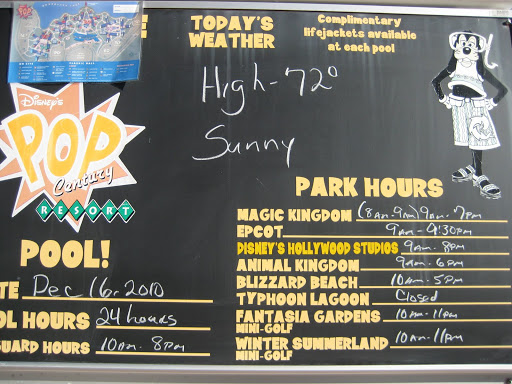 TODAY'S
WEATHER
Complimentary
lifejackets available
at each pool
High - 72°
Sunny
Disney's
POP
Century
RESORT
POOL!
TE Dec 16, 2010
OL HOURS 24 hours
GUARD HOURS 10am - 8pm
PARK HOURS
MAGIC KINGDOM (8am-9am) 9am-7pm
EPCOT 9am-9:30pm
DISNEY'S HOLLYWOOD STUDIOS 9am-8pm
ANIMAL KINGDOM 9am-6pm
BLIZZARD BEACH 10am-5pm
TYPHOON LAGOON Closed
FANTASIA GARDENS 10am-11pm
MINI-GOLF
WINTER SUMMERLAND 10am-11pm
MINI-GOLF